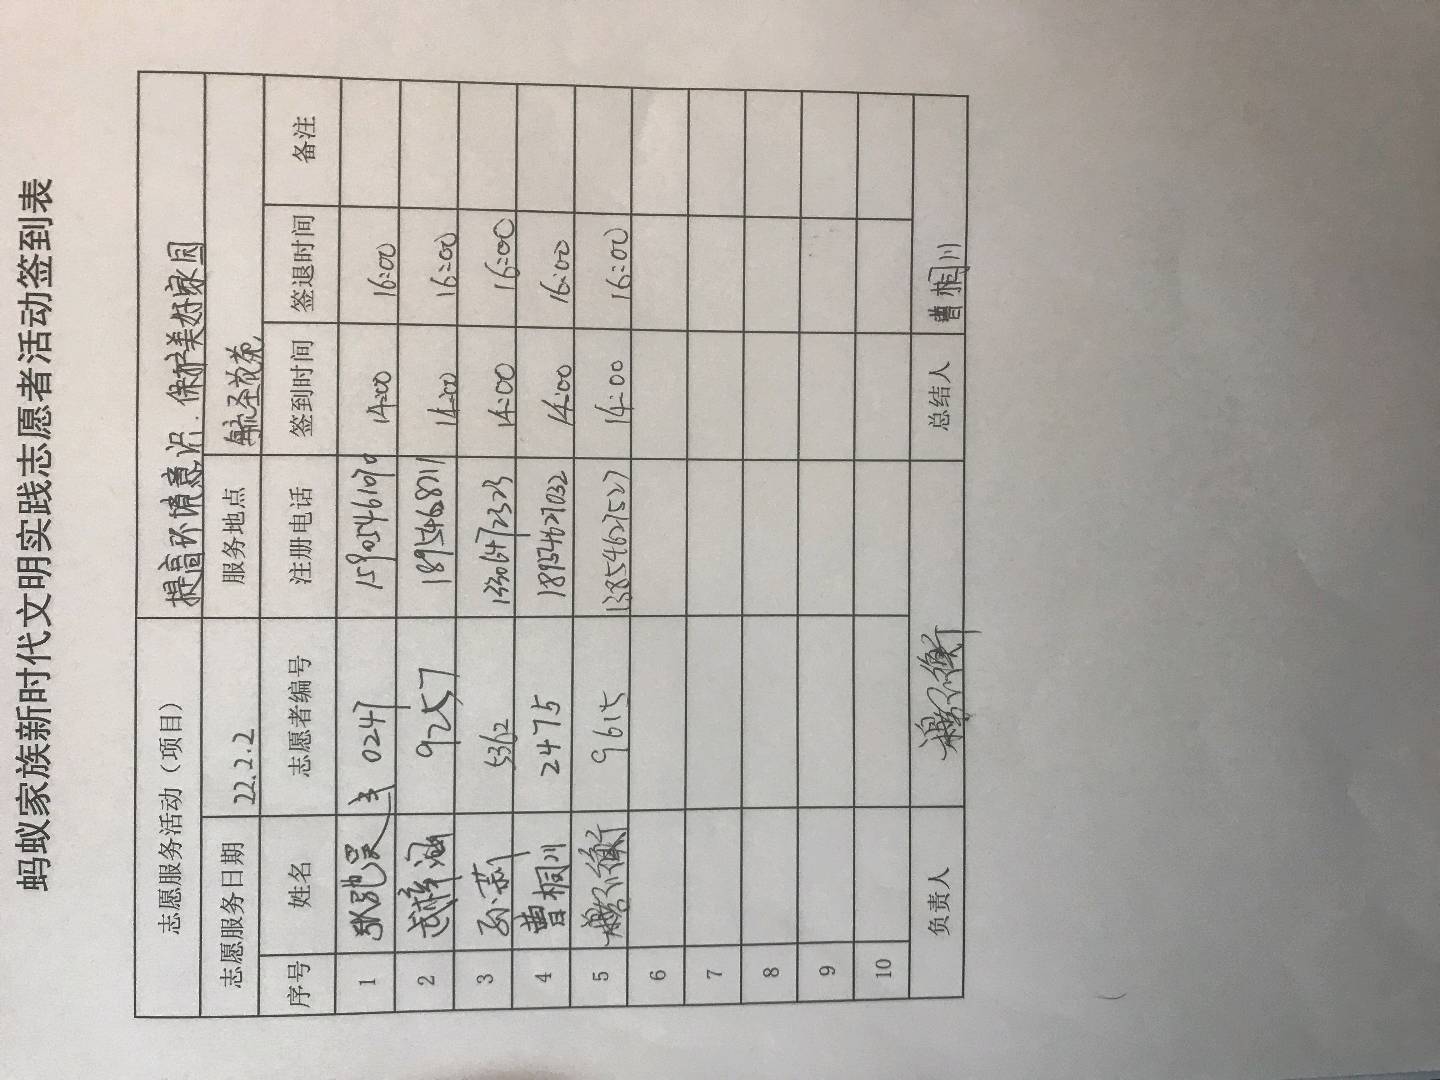 蚂蚁家族新时代文明实践志愿者活动签到表
志愿服务活动（项目） 提高环境意识.保护美好家园
志愿服务日期 22.2.2 服务地点 航圣花苑
序号 姓名 志愿者编号 注册电话 签到时间 签退时间 备注
1 0247 15905461070 14:00 16:00
2 9257 18954668211 14:00 16:00
3 孙恭 5362 13306472323 14:00 16:00
4 曹桐川 2475 18954627032 14:00 16:00
5 9615 13854627527 14:00 16:00
6
7
8
9
10
负责人 总结人 曹桐川